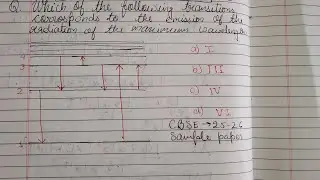 Q. Which of the following transitions
corresponds to the emission of the
radiation of the maximum wavelength
a) I
b) III
2
c) IV
d) VI
CBSE → 25-26
Sample paper